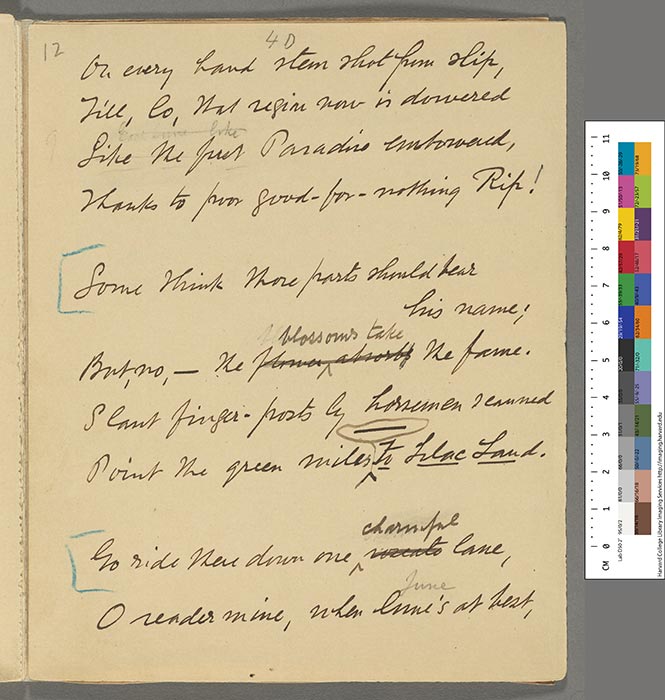 12
40
On every hand stem shot from slip,
Till, lo, that region now is dowered
Like the first Paradise embowered,
Thanks to poor good-for-nothing Rip!
Some think those parts should bear
his name;
blossoms take
But, no, — the flower absorbs the fame.
Slant finger-posts by horsemen scanned
Point the green miles to Lilac Land.
charmful
Go ride there down one lane,
June
O reader mine, when June's at best,
11
10
9
8
7
6
5
4
3
2
1
CM 0
Harvard College Library Imaging Services http://imaging.harvard.edu